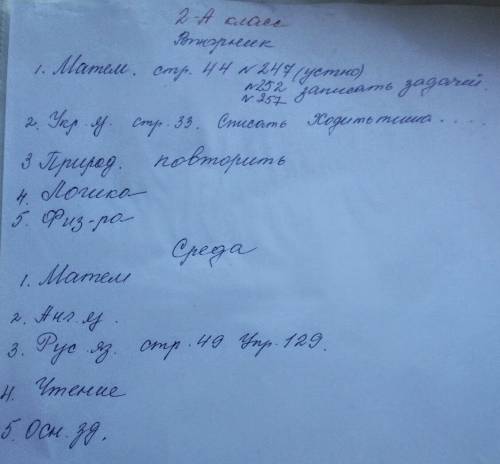 2-А класс
Вторник
1. Матем. стр. 44 №247 (устно)
№252 записать задачей.
№257
2. Укр. яз. стр. 33. Списать Ходитьтиша....
3 Природ. повторить
4. Логика
5. Физ-ра
Среда
1. Матем
2. Анг. яз.
3. Рус. яз. стр. 49 Упр. 129.
4. Чтение
5. Осн. зд.